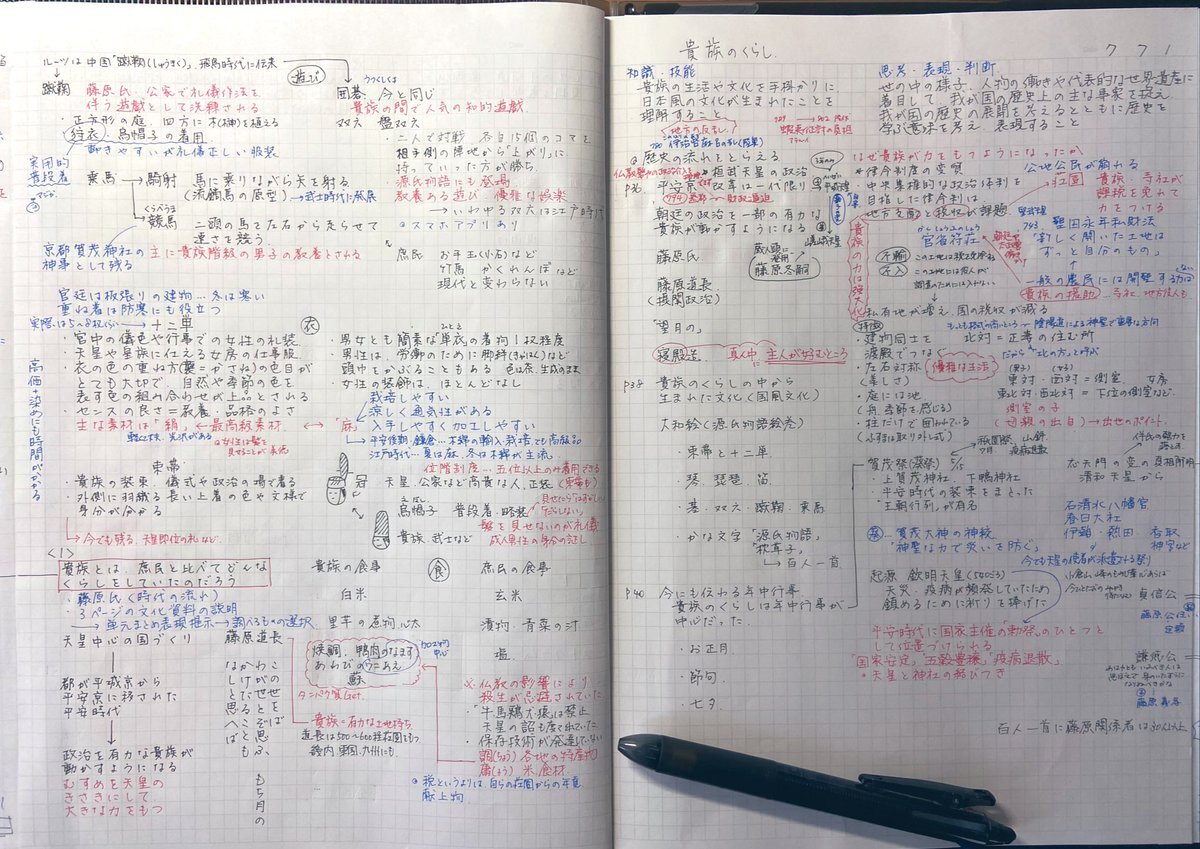 ルーツは中国「蹴鞠(しゅうきく)」飛鳥時代に伝来
遊び
蹴鞠 藤原氏 公家で礼儀作法を
伴う遊戯として洗練される
・正方形の庭 四方に木(樹)を植える
狩衣 烏帽子の着用
動きやすいが礼儀正しい服装
実用的
普段着
乗馬 → 騎射 馬に乗りながら矢を射る
(流鏑馬の原型) → 武士時代に発展
くらべうま
競馬 二頭の馬を左右から走らせて
速さを競う
京都賀茂御社の
神事として残る
主に貴族階級の男子の教養とされる
囲碁 今と同じ
貴族の間で人気の知的遊戯
双六 盤双六
・二人で対戦 各自15個のコマを
相手側の陣地から「上がり」に
持っていった方が勝ち
・源氏物語にも登場
教養ある遊び 優雅な娯楽
いわゆる双六は江戸時代
スマホアプリあり
庶民 お手玉(小石)など
竹馬 かくれんぼなど
現代と変わらない
宮廷は板張りの建物…冬は寒い
重ね着は防寒にも役立つ
実際は5~8枚くらい → 十二単
衣
・宮中の儀式や行事での女性の礼装
・天皇や皇族に仕える女房の仕事服
・衣の色の重ね方(襲=かさね)の色目が
とても大切で、自然や季節の色を
表す色の組み合わせが上品とされる
・センスの良さ=教養・品格のよさ
主な素材は「絹」←最高級素材 ↔ 「麻」
高価 染めにも時間がかかる
男女とも簡素な単衣の着物1枚程度
・男性は、労働のために脚絆(きゃはん)など
頭巾をかぶることもある 色は灰、生成のまま
・女性の装飾は、ほとんどなし
栽培しやすい
涼しく通気性がある
入手しやすく加工しやすい
平安後期・鎌倉…木綿の輸入、栽培でも高級品
江戸時代…夏は麻、冬は木綿が主流
束帯
・貴族の装束、儀式や政治の場で着る
・外側に羽織る長い上着の色や文様で
身分が分かる
→今でも残る、天皇即位の礼など
位階制度…五位以上のみ着用できる
冠 天皇、公家など高貴な人、正装(束帯など)
えぼし
烏帽子 普段着・略装
髪を見せないのが礼儀
貴族、武士など 成人男性の身分の証し
<1>
貴族とは、庶民と比べてどんな
くらしをしていたのだろう
・藤原氏(時代の流れ)
・3ページの文化資料の説明
→単元まとめ表現提示→調べるものの選択
天皇中心の国づくり
都が平城京から
平安京に移された
平安時代
政治を有力な貴族が
動かすようになる
むすめを天皇の
きさきにして
大きな力をもつ
藤原道長
この世をば
わが世とぞ思ふ
もち月の
かけたることも
なしと思へば
貴族の食事
食
庶民の食事
白米
玄米
里芋の煮物
漬物・青菜の汁
焼鯛、鴨肉のなます
あわびのウニあえ
蘇
塩
タンパク質Get.
貴族=有力な土地持ち
道長は500~600荘在園をもつ
畿内、東国、九州にも
※仏教の影響により
殺生が忌避されていた
・牛馬鶏犬猿は禁止
天皇の詔も度々されていた
・保存技術が発達してない
調(ちょう) 各地の特産物
庸(よう) 米、食材
税というよりは、自らの荘園からの年貢
献上物
貴族のくらし 771
知識・技能
貴族の生活や文化を手掛かりに
日本風の文化が生まれたことを
理解すること
思考・表現・判断
世の中の様子、人物の働きや代表的な世界遺産に
着目して、我が国の歴史上の主な事象を捉え、
我が国の歴史の展開を考えるとともに歴史を
学ぶ意味を考え、表現すること
地方の反乱
歴史の流れをとらえる
桓武天皇の政治
平安京 改革は一代限り
794 遷都 → 財政逼迫
朝廷の政治を一部の有力な
貴族が動かすようになる
藤原氏
蔵人頭に
藤原冬嗣
藤原道長
(摂関政治)
「望月の」
寝殿造 真ん中に主人が好むところ
p38 貴族のくらしの中から
生まれた文化(国風文化)
大和絵(源氏物語絵巻)
・束帯と十二単
・琴、琵琶、笛
・碁・双六・蹴鞠・乗馬
・かな文字 「源氏物語」
「枕草子」
→百人一首
P40 今にも伝わる年中行事
貴族のくらしは年中行事が
中心だった
・お正月
・節句
・七夕
なぜ貴族が力をもつようになったか
・律令制度の変質 公地公民が崩れる
・中央集権的な政治体制を
目指した律令制は
地方支配と税収が課題
荘園 貴族・寺社が
課税を免れて
力をつける
貴族の力は強大化
官省符社
不輸 この土地は税を免除
不入 この土地には役人が
調査のためには入れない
743 墾田永年私財法
「新しく開いた土地は
ずっと自分のもの」
一般の農民には開墾する力はない
貴族の援助…寺社、地方役人も
私有地が増え、国の税収が減る
・建物同士を
渡殿でつなぐ
・左右対称 優雅な生活
(美しさ)
・庭には池
(舟、季節を感じる)
・柱だけで囲われている
(ふすまは取り外し式)
北対=正妻の住む所
だから「北の方」と呼ぶ
東対・西対=側室、女房
東北対・西北対=下位の側室など
側室の子
(母親の出自)→出世のポイント
賀茂祭(葵祭) 5/15
・上賀茂神社 下鴨神社
・平安時代の装束をまとった
「王朝行列」が有名
葵…賀茂大神の神紋
「神聖な力で災いを防ぐ」
応天門の変の真相解明
清和天皇から
石清水八幡宮
春日大社
伊勢・熱田・香取
神宮など
今でも天皇の使者が派遣される祭り
起源 欽明天皇(540ごろ)
天災・疫病が頻発していたため
鎮めるために祈りを捧げた
平安時代に国家主催の「勅祭」のひとつと
して位置づけられる
「国家安定」「五穀豊穣」「疫病退散」
・天皇と神社の結びつき
貞信公
藤原公
謙徳公
藤原義孝
百人一首に藤原関係者は30人以上